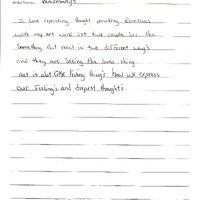 I love expressing thought provoking
with my art work let two people see the
something but react in two different way's
and they are seeing the same thing
art is abt Gbc living thing's how we express
our Feeling's and deepest thoughts